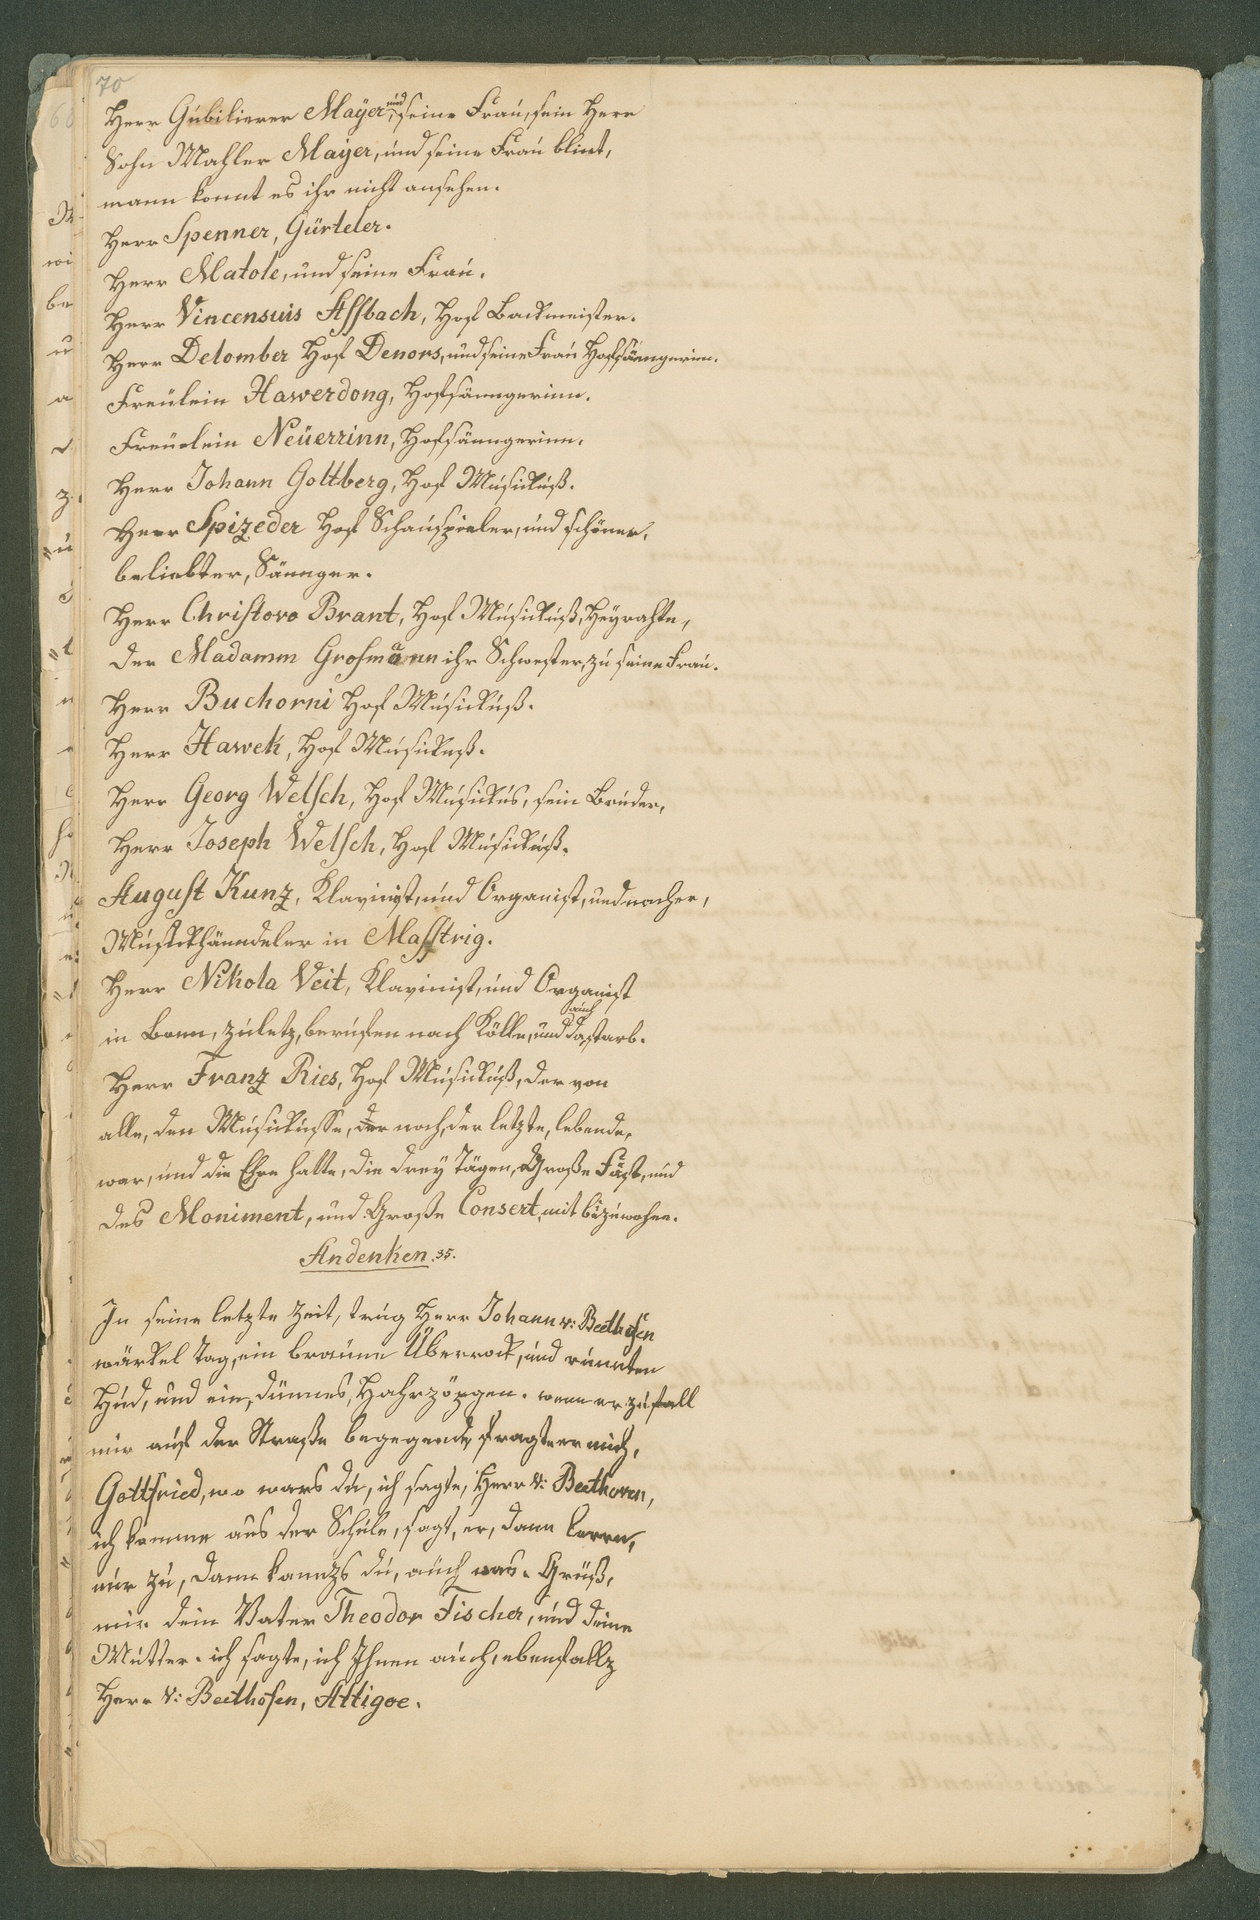 70
Herr Gubilierer Mayer, und seine Frau, sein Herr
Sohn Mahler Mayer, und seine Frau blint,
mann konnt es ihr nicht ansehen.
Herr Spenner, Gürteler.
Herr Matole, und seine Frau.
Herr Vincensuis Assbach, Hof Backmeister.
Herr Delomber Hof Denors, und seine Frau Hofsänngerinn.
Freülein Hawerdong, Hofsänngerinn.
Freüelein Neüerrinn, Hofsänngerinn.
Herr Johann Goltberg, Hof Musickuß.
Herr Spizeder Hof Schauspieler, und schöner,
beliebter, Sännger.
Herr Christovo Brant, Hof Musickuß, Heyrahte,
der Madamm Grosmann ihr Schwester, zu seine Frau.
Herr Buchorni Hof Musickuß.
Herr Hawek, Hof Musickuß.
Herr Georg Welsch, Hof Musickus, sein Bruder,
Herr Joseph Welsch, Hof Musickuß.
August Kunz, Klavinist, und Organist, und nacher,
Musickhänndeler in Masstrig.
Herr Nikola Veit, Klavinist, und Organist
in Bonn, zuletz, berufen nach Kölle, und auch da starb.
Herr Franz Ries, Hof Musickuß, der von
alle, den Musickusse, der noch, der letzte, lebende,
war, und die Ehre hatte, die drey Tägen, Große Fäst, und
des Moniment, und Große Consert, mit bizuwohne.
Andenken. 35.
In seine letzte Zeit, trug Herr Johann v: Beethofen
wärkel Tag, ein braune Überrock, und runnten
Hud, und ein, dünnes, Hahrzöpgen. wenn er zufall
mir auf der Straße begegende, fragte er mich,
Gottfried, wo wars du, ich sagte, Herr v: Beethoven,
ich komme aus der Schule, sagt, er, dann lerrn,
nur zu, dann kannzs du, auch was. Grüß,
mir dein Vater Theodor Fischer, und deine
Mutter. ich sagte, ich Ihnen auch, ebenfallz
Herr v: Beethofen, Attigoe.